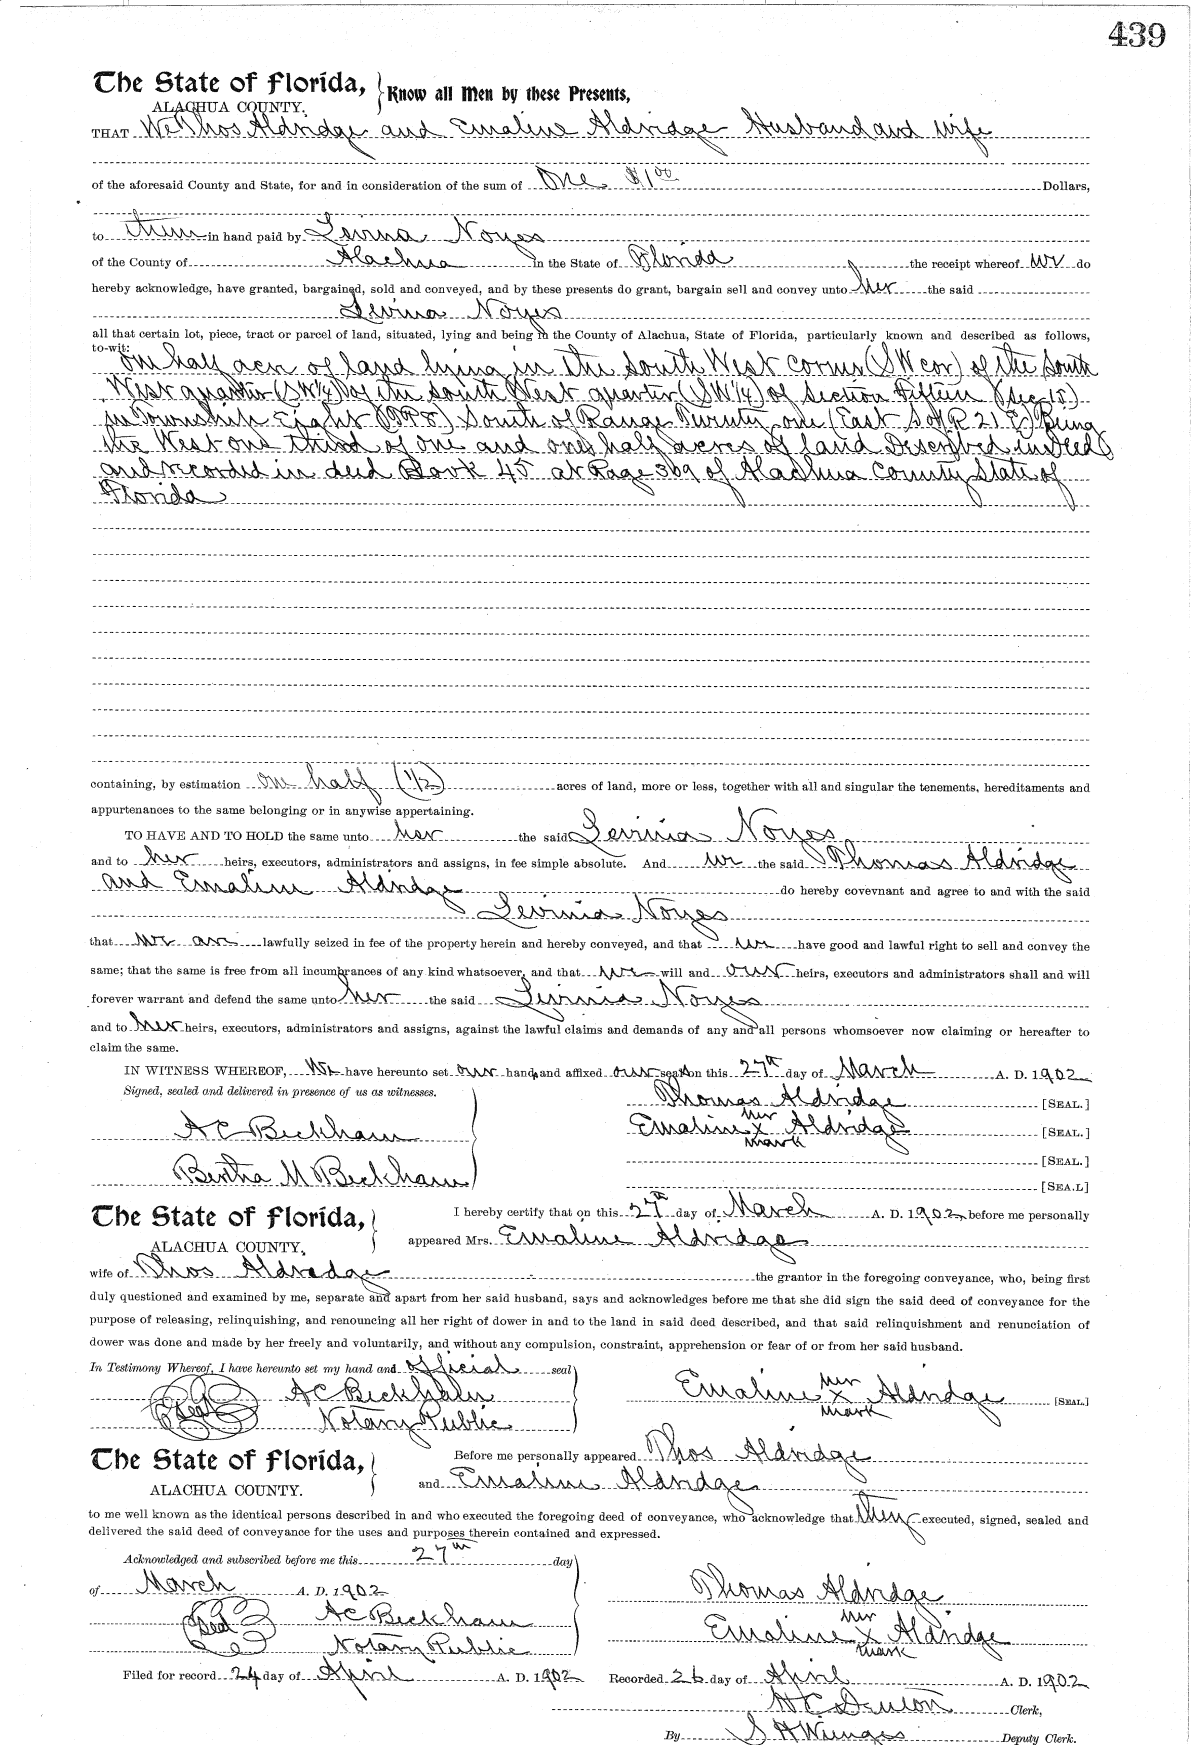 439
The State of Florida,
ALACHUA COUNTY.
Know all Men by these Presents,
THAT We Thos Aldridge and Emaline Aldridge Husband and Wife
of the aforesaid County and State, for and in consideration of the sum of One $1 00 Dollars,
to them in hand paid by Levina Noyes
of the County of Alachua in the State of Florida the receipt whereof we do
hereby acknowledge, have granted, bargained, sold and conveyed, and by these presents do grant, bargain sell and convey unto her the said
Levina Noyes
all that certain lot, piece, tract or parcel of land, situated, lying and being in the County of Alachua, State of Florida, particularly known and described as follows,
to-wit:
one half acre of land lying in the South West corner (SW cor) of the South
West quarter (SW 1/4) of the South West quarter (SW 1/4) of Section Fifteen (Sec 15)
in Township Eight (TP 8) South of Range Twenty one (East S of R 21 E) Being
the West one third of one and one half acres of land Described in Deed
and recorded in deed Book 45 at Page 369 of Alachua County State of
Florida
containing, by estimation one half (1/2) acres of land, more or less, together with all and singular the tenements, hereditaments and
appurtenances to the same belonging or in anywise appertaining.
TO HAVE AND TO HOLD the same unto her the said Levinia Noyes
and to her heirs, executors, administrators and assigns, in fee simple absolute. And we the said Thomas Aldridge
and Emaline Aldridge do hereby covevnant and agree to and with the said
Levinia Noyes
that we are lawfully seized in fee of the property herein and hereby conveyed, and that we have good and lawful right to sell and convey the
same; that the same is free from all incumbrances of any kind whatsoever, and that we will and our heirs, executors and administrators shall and will
forever warrant and defend the same unto her the said Levinia Noyes
and to her heirs, executors, administrators and assigns, against the lawful claims and demands of any and all persons whomsoever now claiming or hereafter to
claim the same.
IN WITNESS WHEREOF, We have hereunto set our hands and affixed our seals on this 27th day of March A. D. 1902
Signed, sealed and delivered in presence of us as witnesses.
Thomas Aldridge [SEAL.]
A C Beckham
Emaline her X mark Aldridge [SEAL.]
[SEAL.]
Bertha M Beckham
[SEA.L]
The State of Florida,
ALACHUA COUNTY,
I hereby certify that on this 27th day of March A. D. 1902 before me personally
appeared Mrs. Emaline Aldridge
wife of Thos Aldredge the grantor in the foregoing conveyance, who, being first
duly questioned and examined by me, separate and apart from her said husband, says and acknowledges before me that she did sign the said deed of conveyance for the
purpose of releasing, relinquishing, and renouncing all her right of dower in and to the land in said deed described, and that said relinquishment and renunciation of
dower was done and made by her freely and voluntarily, and without any compulsion, constraint, apprehension or fear of or from her said husband.
In Testimony Whereof, I have hereunto set my hand and official seal
Seal A C Beckham
Notary Public
Emaline her X mark Aldridge [SEAL.]
The State of Florida,
ALACHUA COUNTY.
Before me personally appeared Thos Aldridge
and Emaline Aldridge
to me well known as the identical persons described in and who executed the foregoing deed of conveyance, who acknowledge that they executed, signed, sealed and
delivered the said deed of conveyance for the uses and purposes therein contained and expressed.
Acknowledged and subscribed before me this 27th day
of March A. D. 1902
Thomas Aldridge
Seal A C Beckham
Notary Public
Emaline her X mark Aldridge
Filed for record 24 day of April A. D. 1902 Recorded 26 day of April A. D. 1902
Clerk,
By Deputy Clerk.